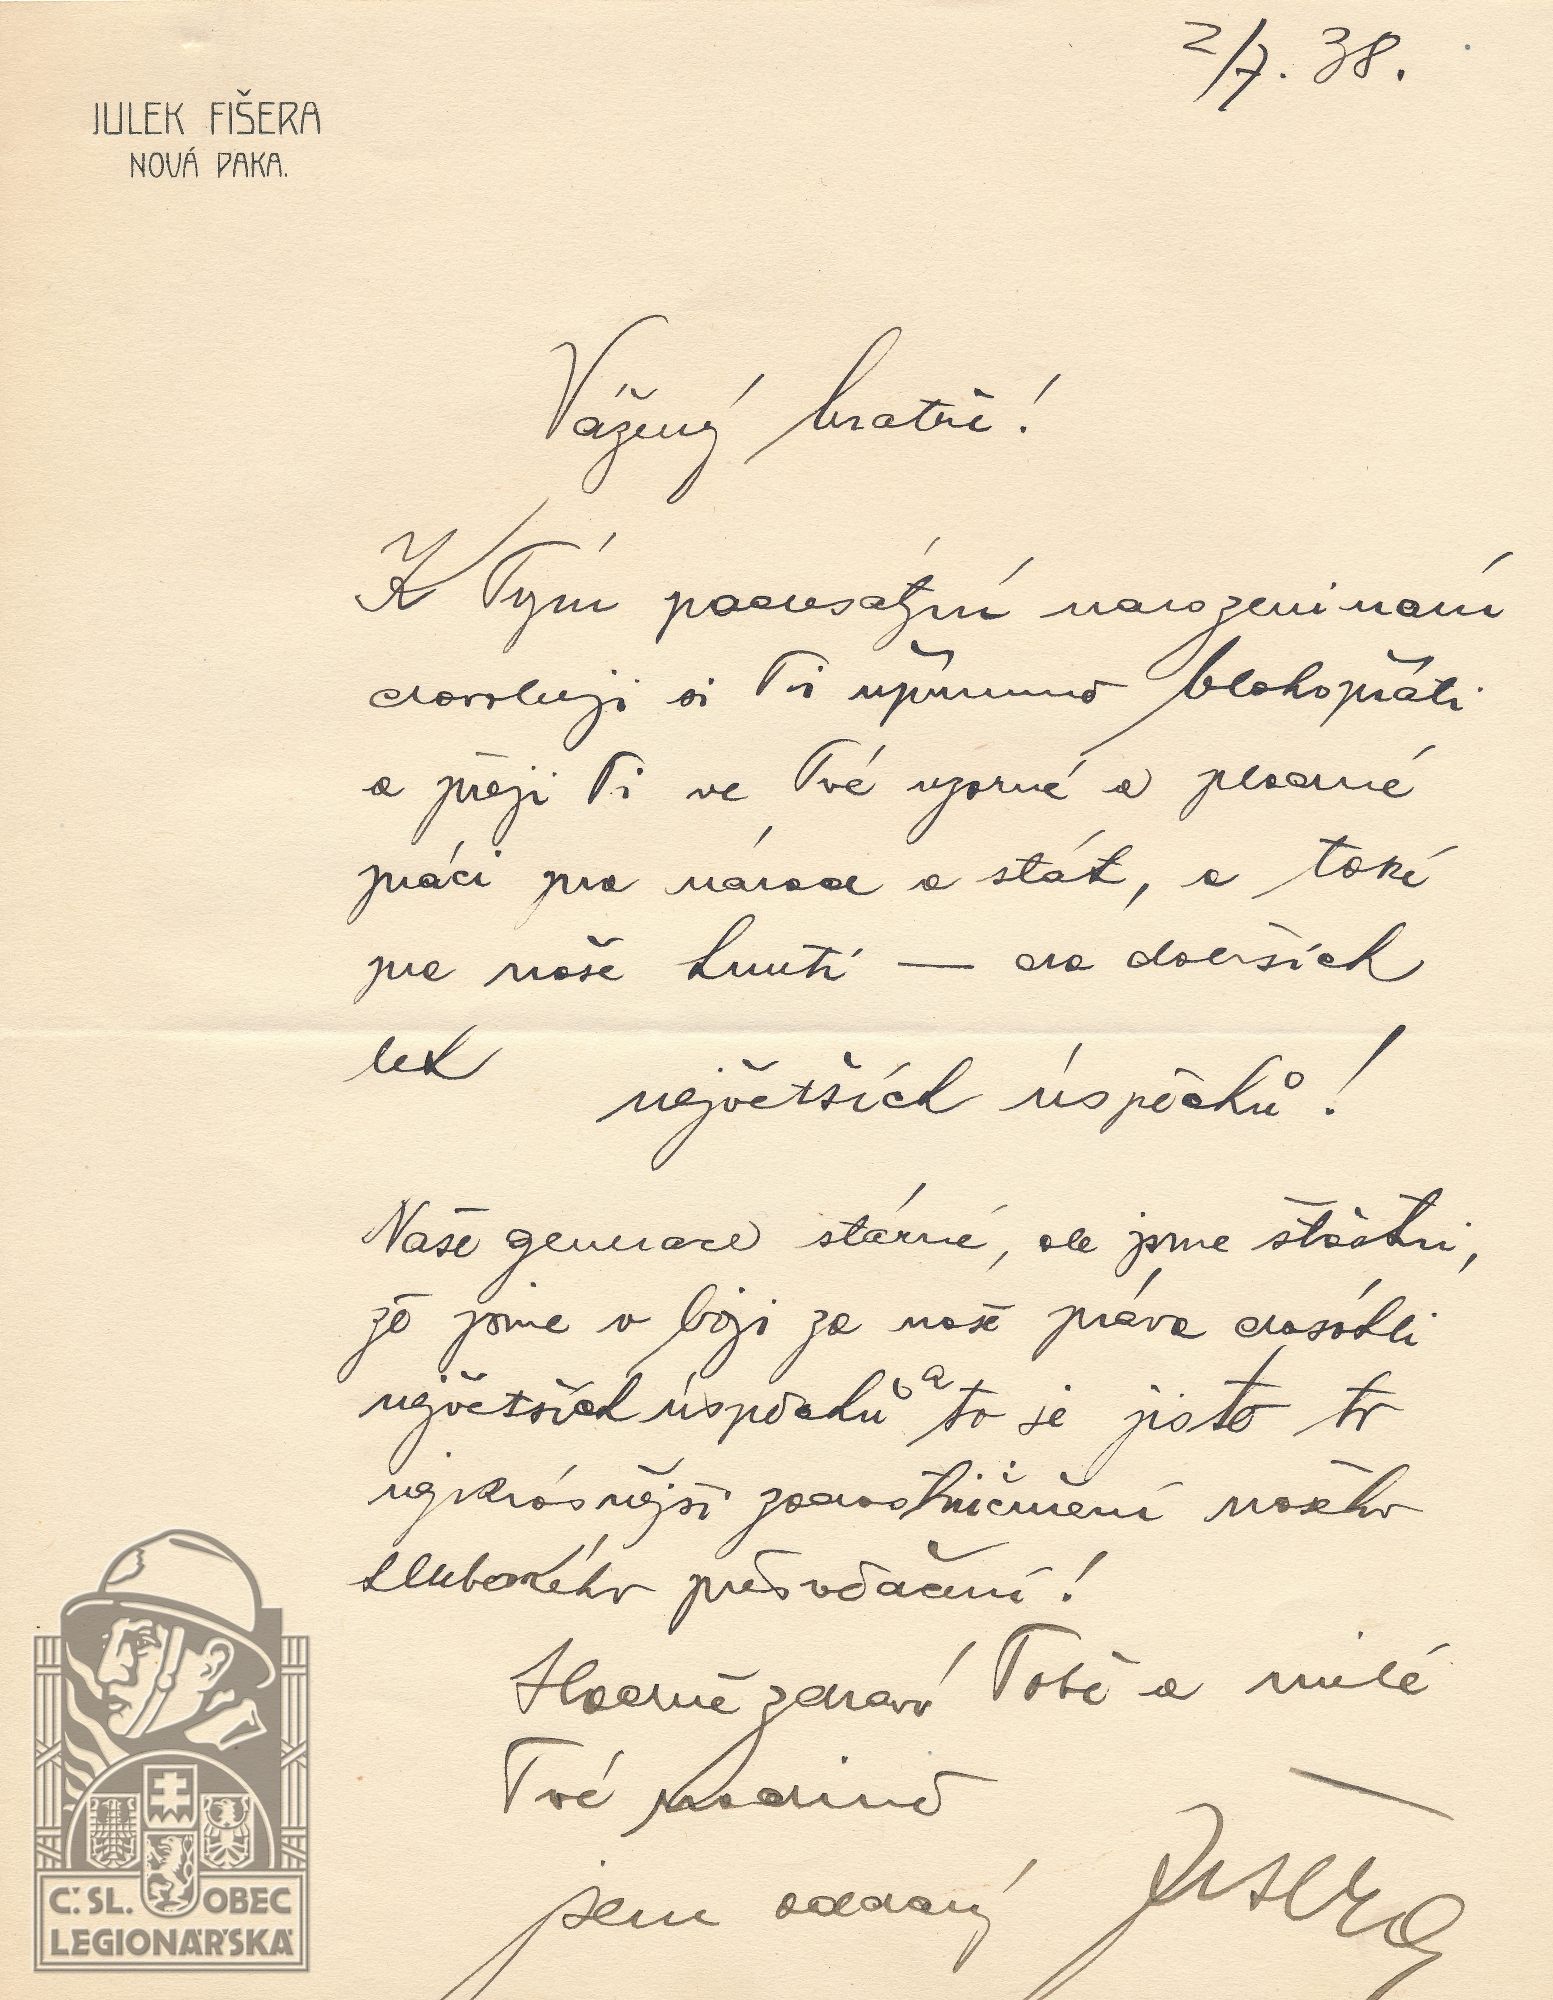 2/7. 38.
JULEK FIŠERA
NOVÁ PAKA.
Vážený bratře!
K Tvým padesátým narozeninám
dovoluji si Ti upřímně blahopřáti
a přeji Ti ve Tvé vzorné a plodné
práci pro národ a stát, a také
pro naše hnutí — do dalších
let
největších úspěchů!
Naše generace stárne, ale jsme šťastni,
že jsme v boji za naše práva dosáhli
největších úspěchů a to je jistě to
nejkrásnější zadostiučinění našeho
hlubokého přesvědčení!
Hodně zdraví Tobě a milé
Tvé rodině
jsem oddaný Fišera
Č.SL. OBEC
LEGIONÁŘSKÁ